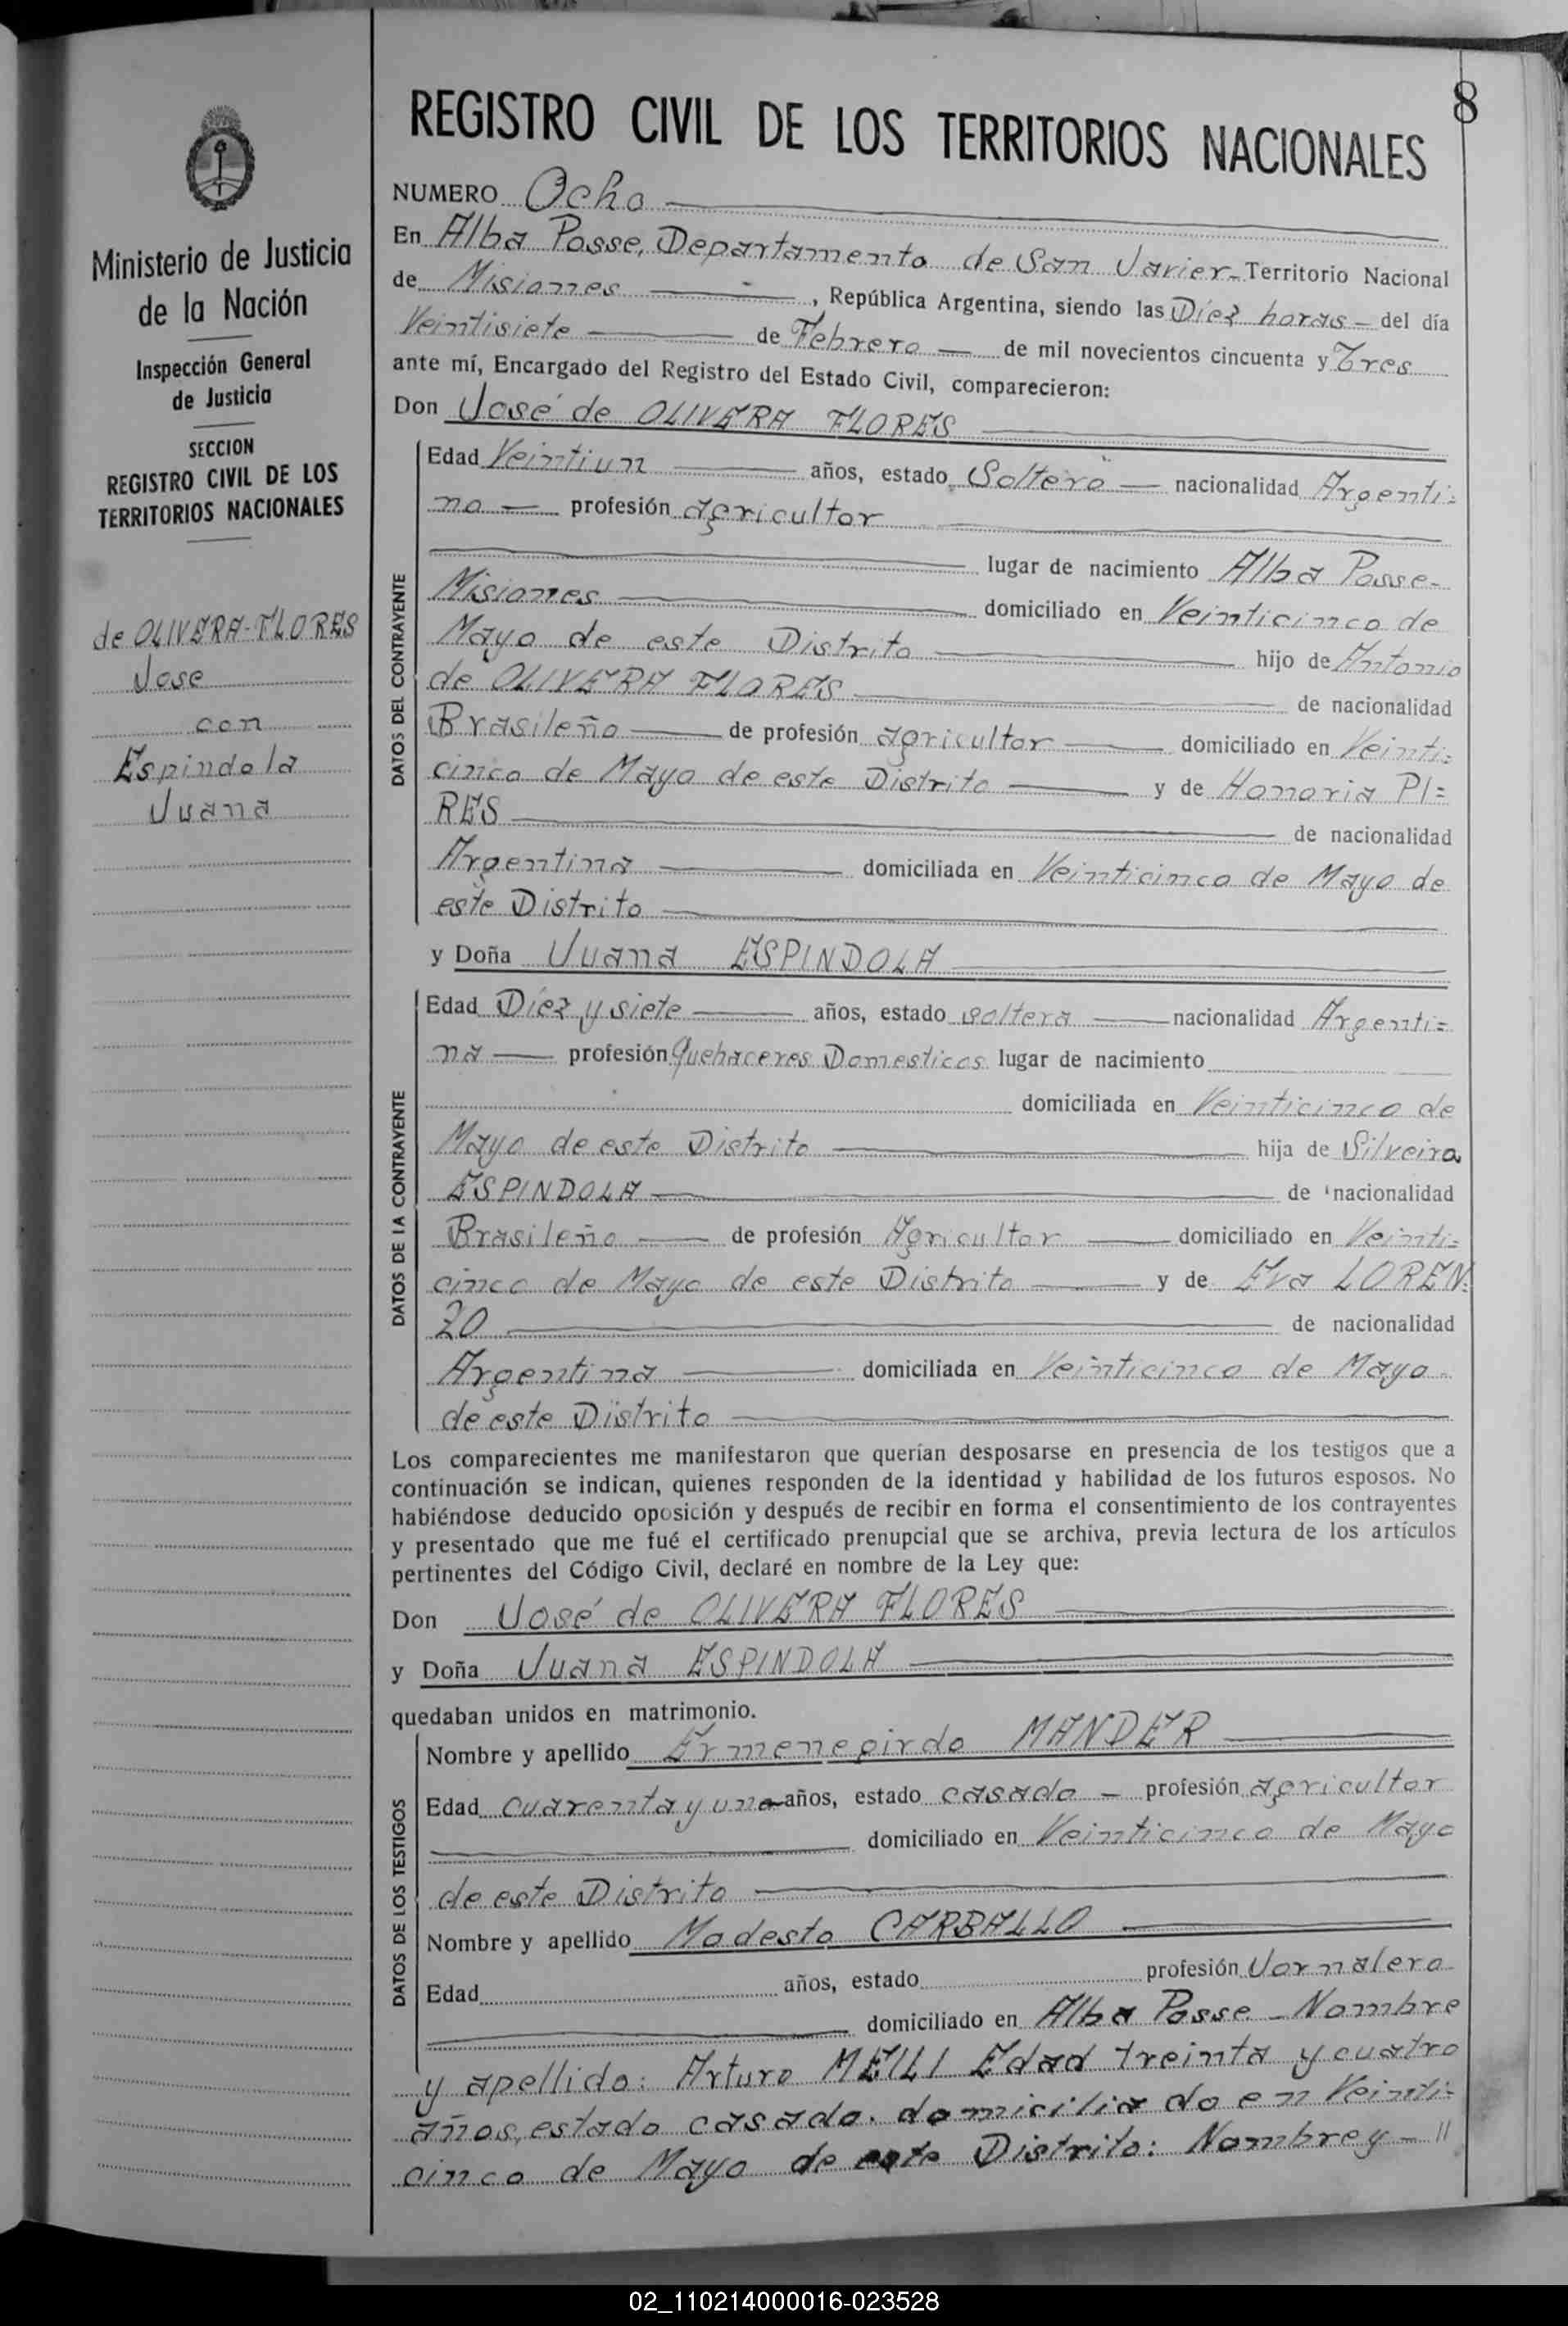 8
REGISTRO CIVIL DE LOS TERRITORIOS NACIONALES
Ministerio de Justicia
de la Nación
Inspección General
de Justicia
SECCION
REGISTRO CIVIL DE LOS
TERRITORIOS NACIONALES
de OLIVERA-FLORES
Jose
con
Espindola
Juana
NUMERO Ocho
En Alba Posse, Departamento de San Javier- Territorio Nacional
de Misiones , República Argentina, siendo las Diez horas - del día
Veintisiete de Febrero de mil novecientos cincuenta y Tres
ante mí, Encargado del Registro del Estado Civil, comparecieron:
Don José de OLIVERA FLORES
DATOS DEL CONTRAYENTE
Edad Veintiun años, estado Soltero nacionalidad Argenti=
no profesión agricultor
lugar de nacimiento Alba Posse-
Misiones domiciliado en Veinticinco de
Mayo de este Distrito hijo de Antonio
de OLIVERA FLORES de nacionalidad
Brasileño de profesión agricultor domiciliado en Veinti=
cinco de Mayo de este Distrito y de Honoria PI=
RES de nacionalidad
Argentina domiciliada en Veinticinco de Mayo de
este Distrito
y Doña Juana ESPINDOLA
DATOS DE LA CONTRAYENTE
Edad Diez y siete años, estado soltera nacionalidad Argenti=
na profesión Quehaceres Domesticos lugar de nacimiento
domiciliada en Veinticinco de
Mayo de este Distrito hija de Silveira
ESPINDOLA de nacionalidad
Brasileño de profesión Agricultor domiciliado en Veinti=
cinco de Mayo de este Distrito y de Eva LOREN=
ZO de nacionalidad
Argentina domiciliada en Veinticinco de Mayo
de este Distrito
Los comparecientes me manifestaron que querían desposarse en presencia de los testigos que a
continuación se indican, quienes responden de la identidad y habilidad de los futuros esposos. No
habiéndose deducido oposición y después de recibir en forma el consentimiento de los contrayentes
y presentado que me fué el certificado prenupcial que se archiva, previa lectura de los artículos
pertinentes del Código Civil, declaré en nombre de la Ley que:
Don José de OLIVERA FLORES
y Doña Juana ESPINDOLA
quedaban unidos en matrimonio.
DATOS DE LOS TESTIGOS
Nombre y apellido Ermenegirdo MANDER
Edad cuarenta y uno años, estado casado - profesión agricultor
domiciliado en Veinticinco de Mayo
de este Distrito
Nombre y apellido Modesto CARBALLO
Edad años, estado profesión Jornalero
domiciliado en Alba Posse - Nombre
y apellido: Arturo MEILI Edad treinta y cuatro
años, estado casado. domiciliado en Veinti=
cinco de Mayo de este Distrito: Nombre y - //
02_110214000016-023528